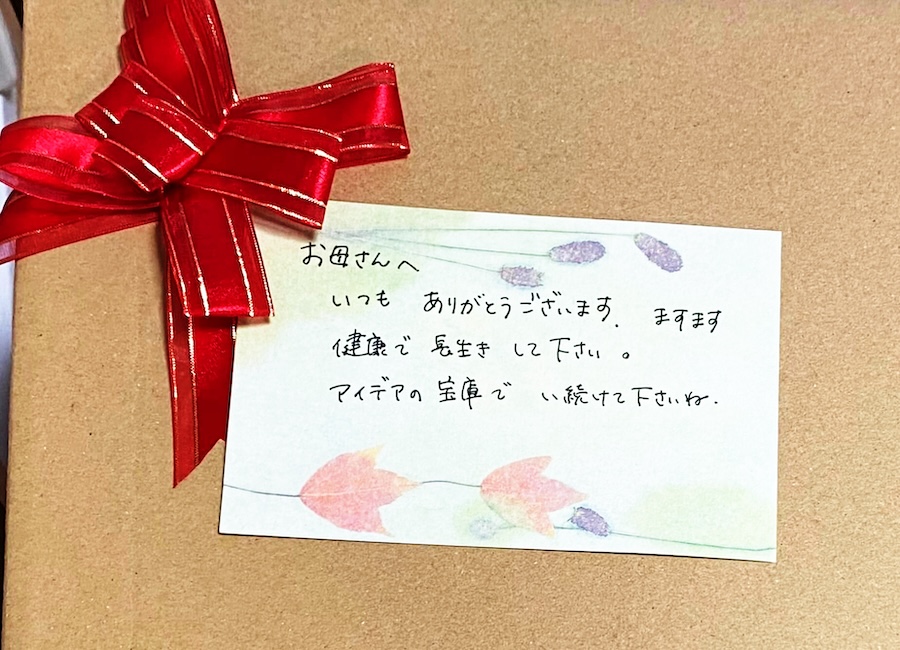 お母さんへ
いつも ありがとうございます. ますます
健康で 長生き して下さい。
アイデアの宝庫で い続けて下さいね.